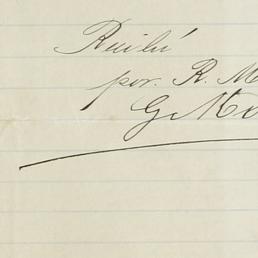 Recibí
por. R. M
G M